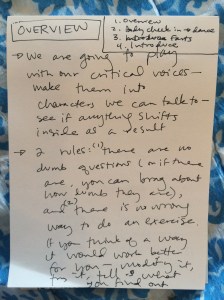 OVERVIEW
1. overview
2. body check in → dance
3. introduce Farts
4. Introduce
→ We are going to play
with our critical voices —
make them into
characters we can talk to —
see if anything shifts
inside as a result
→ 2 rules: (1) there are no
dumb questions (or if there
are, you can brag about
how dumb they are),
and (2) there is no wrong
way to do an exercise.
If you think of a way
it would work better
for you — modify it,
try it, tell us what
you find out